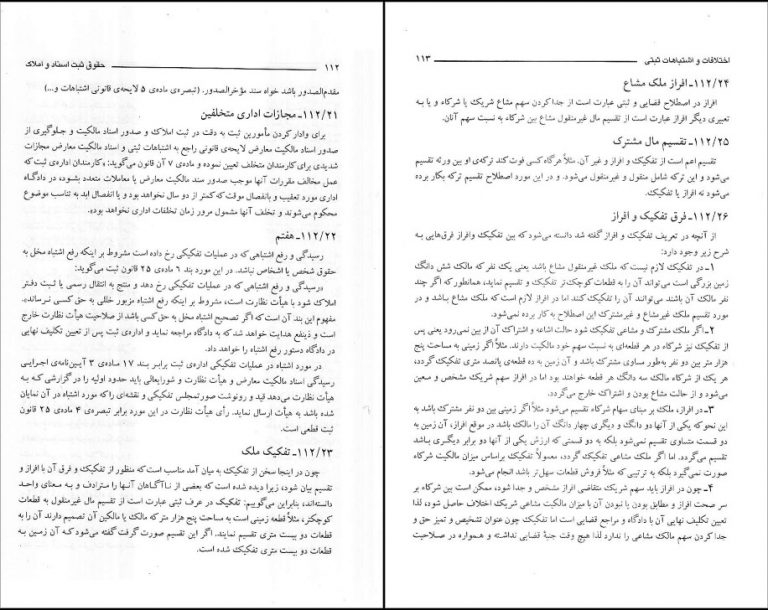 ۱۱۲ حقوق ثبت اسناد و املاک
مقدم‌الصدور باشد خواه سند مؤخرالصدور. (تبصره‌ی ماده‌ی ۵ لایحه‌ی قانونی اشتباهات و...)
۱۱۲/۲۱ـ مجازات اداری متخلفین
برای وادار کردن مأمورین ثبت به دقت در ثبت املاک و صدور اسناد مالکیت و جلوگیری از
صدور اسناد مالکیت معارض لایحه‌ی قانونی راجع به اشتباهات ثبتی و اسناد مالکیت معارض مجازات
شدیدی برای کارمندان متخلف تعیین نموده و ماده‌ی ۷ آن قانون می‌گوید: «کارمندان اداره‌ی ثبت که
عمل مخالف مقررات آنها موجب صدور سند مالکیت معارض یا معاملات متعدد بشود، در دادگاه
اداری مورد تعقیب و بانفصال موقت که کمتر از دو سال نخواهد بود و یا انفصال ابد به تناسب موضوع
محکوم می‌شوند و تخلف آنها مشمول مرور زمان تخلفات اداری نخواهد بود».
۱۱۲/۲۲ـ هفتم
رسیدگی و رفع اشتباهی که در عملیات تفکیکی رخ داده است مشروط بر اینکه رفع اشتباه مخل به
حقوق شخص یا اشخاص نباشد. در این مورد بند ۶ ماده‌ی ۲۵ قانون ثبت می‌گوید:
«رسیدگی و رفع اشتباهی که در عملیات تفکیکی رخ دهد و منتج به انتقال رسمی یا ثبت دفتر
املاک شود با هیأت نظارت است، مشروط بر اینکه رفع اشتباه مزبور خللی به حق کسی نرساند».
مفهوم این بند آن است که اگر تصحیح اشتباه مخل به حق کسی باشد از صلاحیت هیأت نظارت خارج
است و ذینفع هدایت خواهد شد که به دادگاه مراجعه نماید و اداره‌ی ثبت پس از تعیین تکلیف نهایی
در دادگاه دستور رفع اشتباه را خواهد داد.
در مورد اشتباه در عملیات تفکیکی اداره‌ی ثبت برابر بند ۱۷ ماده‌ی ۳ آیین‌نامه‌ی اجرایی
رسیدگی اسناد مالکیت معارض و هیأت نظارت و شورایعالی باید حدود اولیه را در گزارشی که به
هیأت نظارت می‌دهد قید و رونوشت صورتمجلس تفکیکی و نقشه‌ای را که مورد اشتباه در آن نمایان
شده باشد به هیأت ارسال نماید. رأی هیأت نظارت در این مورد برابر تبصره‌ی ۴ ماده‌ی ۲۵ قانون
ثبت قطعی است.
۱۱۲/۲۳ـ تفکیک ملک
چون در اینجا سخن از تفکیک به میان آمد مناسب است که منظور از تفکیک و فرق آن با افراز و
تقسیم بیان شود، زیرا دیده شده است که بعضی از ناآگاهان آنها را مترادف و به معنای واحد
دانسته‌اند، بنابراین می‌گوییم: تفکیک در عرف ثبتی عبارت است از تقسیم مال غیرمنقول به قطعات
کوچکتر، مثلاً قطعه زمینی است به مساحت پنج هزار متر که مالک یا مالکین آن تصمیم دارند آن را به
قطعات دو بیست متری تقسیم نمایند. اگر این تقسیم صورت گرفت گفته می‌شود که آن زمین به
قطعات دو بیست متری تفکیک شده است.
اختلافات و اشتباهات ثبتی ۱۱۳
۱۱۲/۲۴ـ افراز ملک مشاع
افراز در اصطلاح قضایی و ثبتی عبارت است از جدا کردن سهم مشاع شریک یا شرکاء و یا به
تعبیری دیگر افراز عبارت است از تقسیم مال غیرمنقول مشاع بین شرکاء به نسبت سهم آنان.
۱۱۲/۲۵ـ تقسیم مال مشترک
تقسیم اعم است از تفکیک و افراز و غیر آن. مثلاً هرگاه کسی فوت کند ترکه‌ی او بین ورثه تقسیم
می‌شود و این ترکه شامل منقول و غیرمنقول می‌شود. و در این مورد اصطلاح تقسیم ترکه بکار برده
می‌شود نه افراز یا تفکیک.
۱۱۲/۲۶ـ فرق تفکیک و افراز
از آنچه در تعریف تفکیک و افراز گفته شد دانسته می‌شود که بین تفکیک وافراز فرق‌هایی به
شرح زیر وجود دارد:
۱ـ در تفکیک لازم نیست که ملک غیرمنقول مشاع باشد یعنی یک نفر که مالک شش دانگ
زمین بزرگی است می‌تواند آن را به قطعات کوچک‌تر تفکیک و تقسیم نماید، همانطور که اگر چند
نفر مالک آن باشند می‌توانند آن را تفکیک کنند اما در افراز لازم است که ملک مشاع باشد و در
مورد تقسیم ملک غیرمشاع و غیرمشترک این اصطلاح به کار برده نمی‌شود.
۲ـ اگر ملک مشترک و مشاعی تفکیک شود حالت اشاعه و اشتراک آن از بین نمی‌رود یعنی پس
از تفکیک نیز شرکاء در هر قطعه‌ای به نسبت سهم خود مالکیت دارند. مثلاً اگر زمینی به مساحت پنج
هزار متر بین دو نفر به‌طور مساوی مشترک باشد و آن زمین به ده قطعه‌ی پانصد متری تفکیک گردد،
هر یک از شرکاء مالک سه دانگ هر قطعه خواهند بود اما در افراز سهم شریک مشخص و معین
می‌شود و از حالت مشاع بودن و اشتراک خارج می‌گردد.
۳ـ در افراز، ملک بر مبنای سهام شرکاء تقسیم می‌شود مثلاً اگر زمینی بین دو نفر مشترک باشد به
این نحو که یکی از آنها دو دانگ و دیگری چهار دانگ آن را مالک باشد در موقع افراز، آن زمین به
دو قسمت متساوی تقسیم نمی‌شود بلکه به دو قسمتی که ارزش یکی از آنها دو برابر دیگری باشد
تقسیم می‌گردد. اما اگر ملک مشاعی تفکیک گردد، معمولاً تفکیک براساس میزان مالکیت شرکاء
صورت نمی‌گیرد بلکه به ترتیبی که مثلاً فروش قطعات سهل‌تر باشد انجام می‌شود.
۴ـ چون در افراز باید سهم شریک متقاضی افراز مشخص و جدا شود، ممکن است بین شرکاء بر
سر صحت افراز و مطابق بودن یا نبودن آن با میزان مالکیت مشاعی شریک اختلاف حاصل شود، لذا
تعیین تکلیف نهایی آن با دادگاه و مراجع قضایی است اما تفکیک چون عنوان تشخیص و تمیز حق و
جدا کردن سهم مالک مشاعی را ندارد لذا هیچ وقت جنبهٔ قضایی نداشته و همواره در صلاحیت